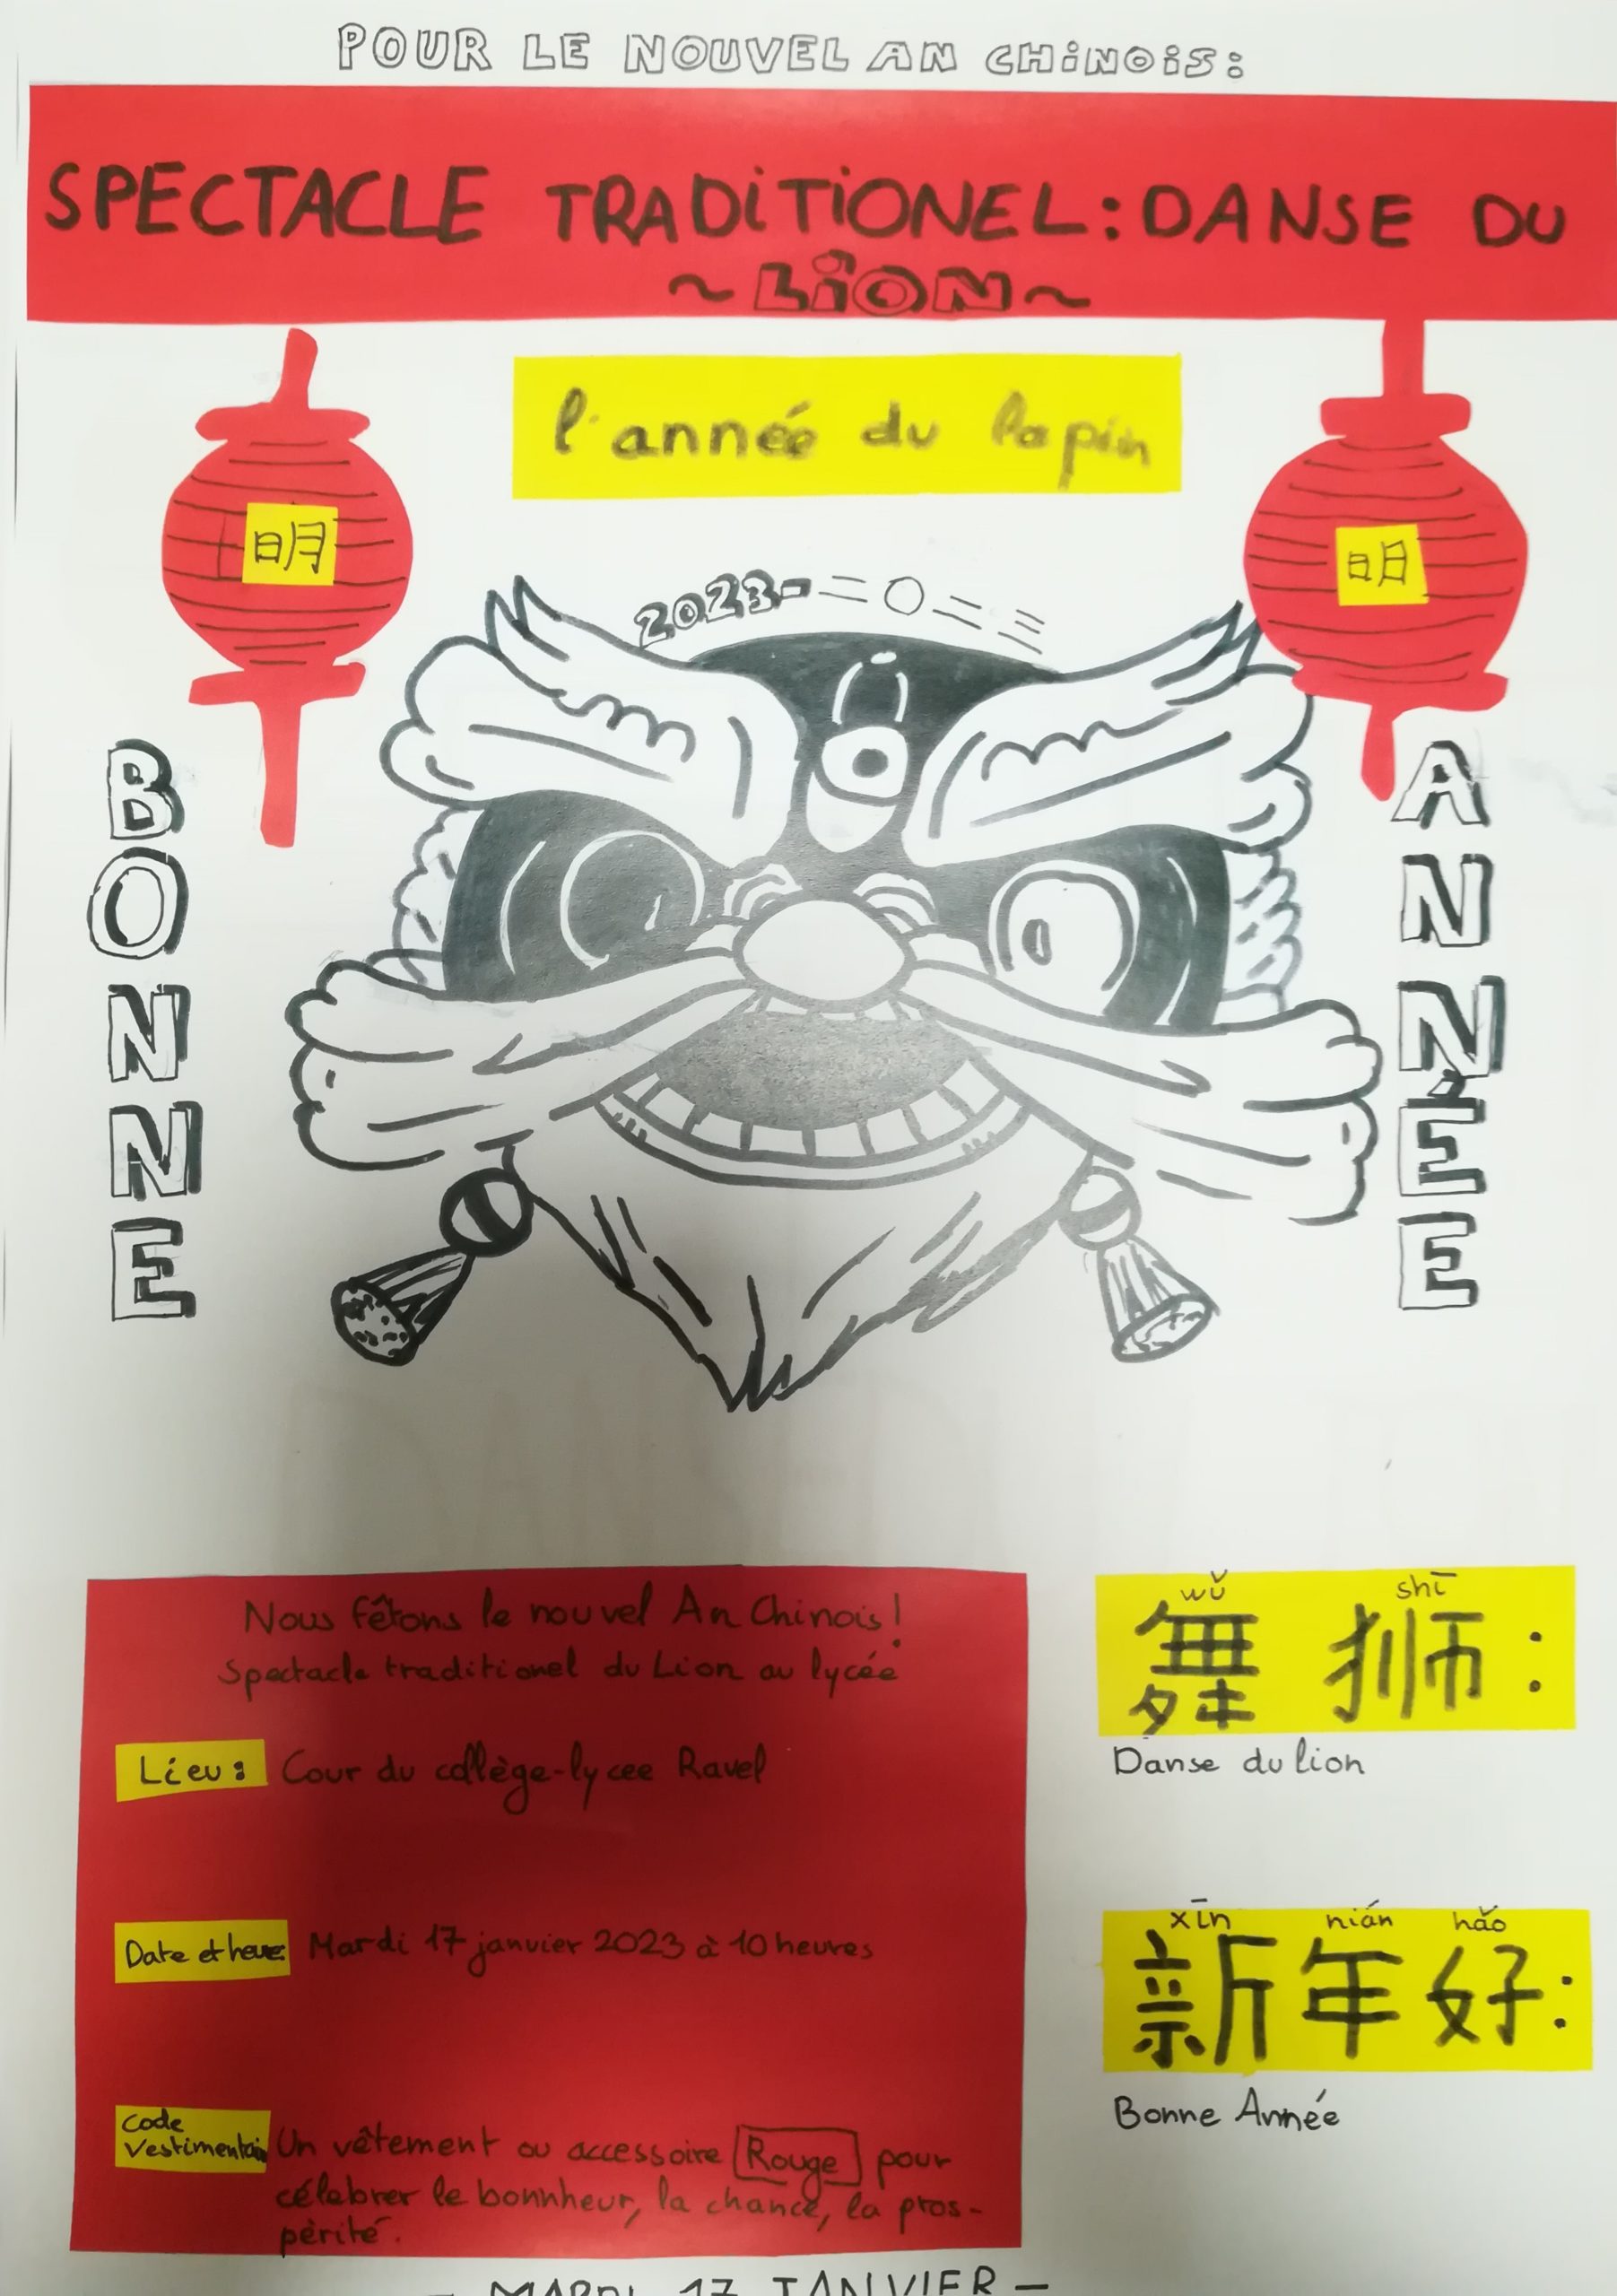 POUR LE NOUVEL AN CHINOIS:
SPECTACLE TRADITIONEL: DANSE DU
~ LION ~
l'année du lapin
明
明
2023-二〇二三
BONNE
ANNÉE
Nous fêtons le nouvel An Chinois!
Spectacle traditionel du Lion au lycée
Lieu: Cour du collège-lycee Ravel
Date et heure Mardi 17 janvier 2023 à 10 heures
Code
Vestimentaire
Un vêtement ou accessoire Rouge pour
célébrer le bonnheur, la chance, la pros-
périté.
wǔ shī
舞 狮:
Danse du lion
xīn nián hǎo
新年好:
Bonne Année
- MARDI 17 JANVIER -